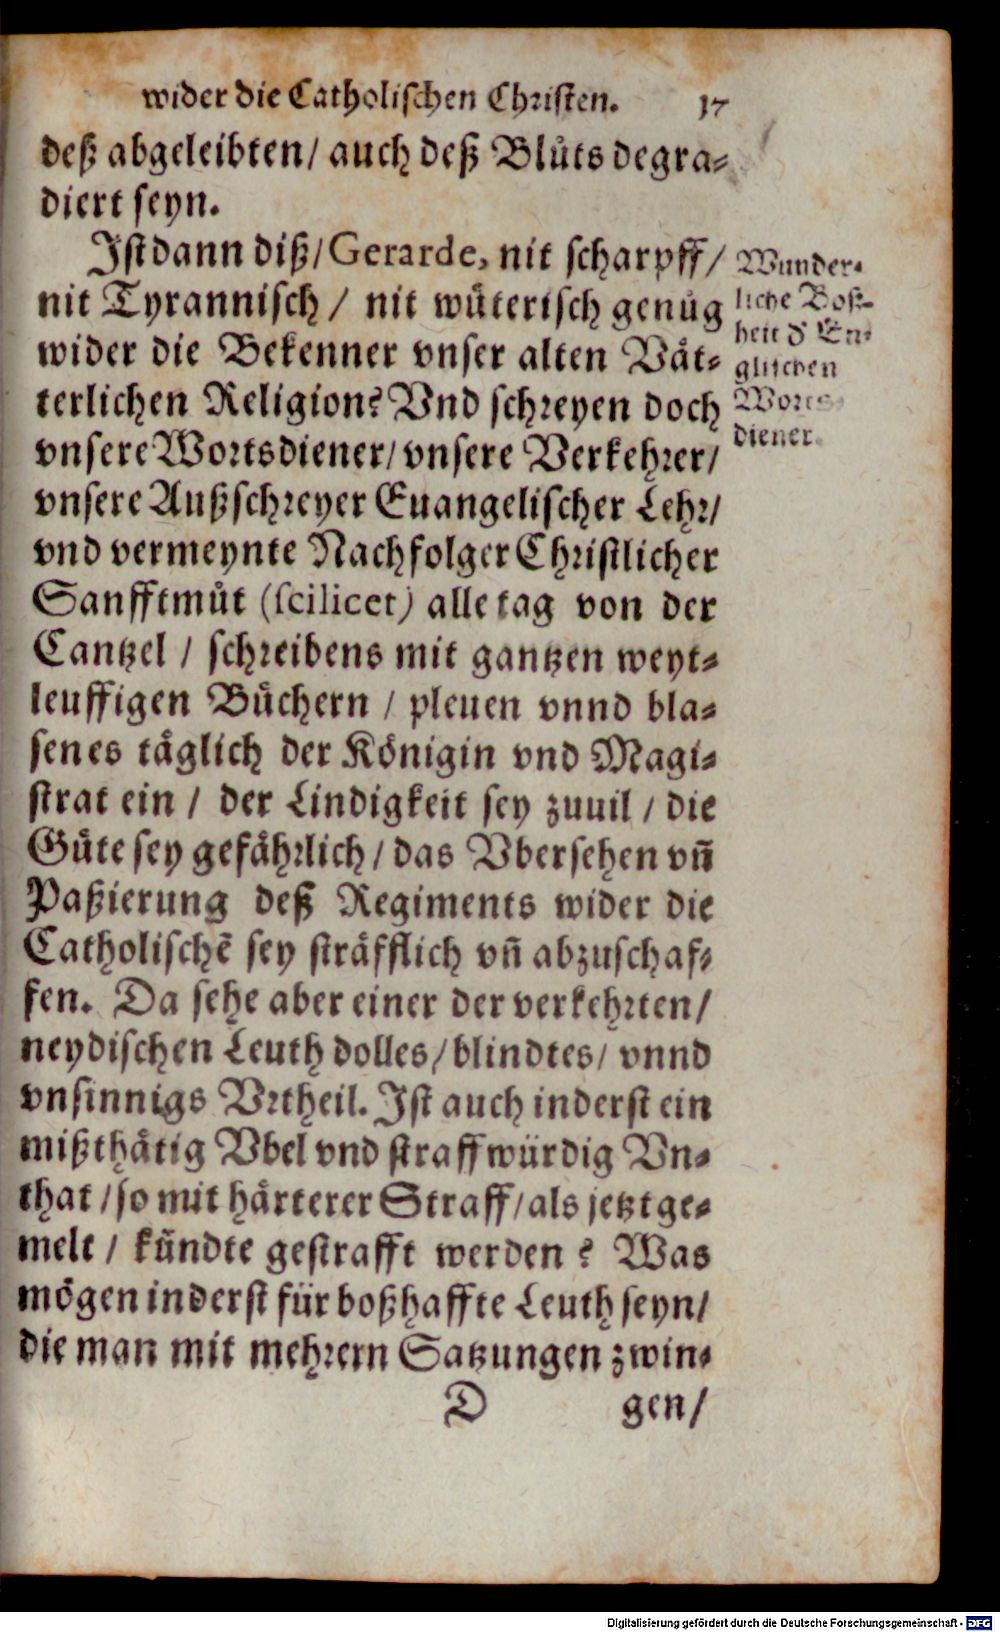 wider die Catholischen Christen. 17
deß abgeleibten/ auch deß Blůts degra-
diert seyn.
Ist dann diß/ Gerarde, nit scharpff/
nit Tyrannisch / nit wůterisch genůg
wider die Bekenner vnser alten Våt-
terlichen Religion? Vnd schreyen doch
vnsere Wortsdiener/ vnsere Verkehrer/
vnsere Außschreyer Euangelischer Lehr/
vnd vermeynte Nachfolger Christlicher
Sanfftmůt (scilicet) alle tag von der
Cantzel / schreibens mit gantzen weyt-
leuffigen Bůchern / pleuen vnnd bla-
sen es tåglich der Königin vnd Magi-
strat ein / der Lindigkeit sey zuuil / die
Gůte sey gefåhrlich / das Vbersehen vñ
Paßierung deß Regiments wider die
Catholischẽ sey stråfflich vñ abzuschaf-
fen. Da sehe aber einer der verkehrten/
neydischen Leuth dolles/ blindtes/ vnnd
vnsinnigs Vrtheil. Ist auch inderst ein
mißthåtig Vbel vnd straffwürdig Vn-
that / so mit hårterer Straff/ als jetzt ge-
melt / kůndte gestrafft werden ? Was
mögen inderst für boßhaffte Leuth seyn/
die man mit mehrern Satzungen zwin-
D gen/
Wunder-
liche Boß-
heit d' En-
glischen
Worts-
diener.
Digitalisierung gefördert durch die Deutsche Forschungsgemeinschaft - DFG